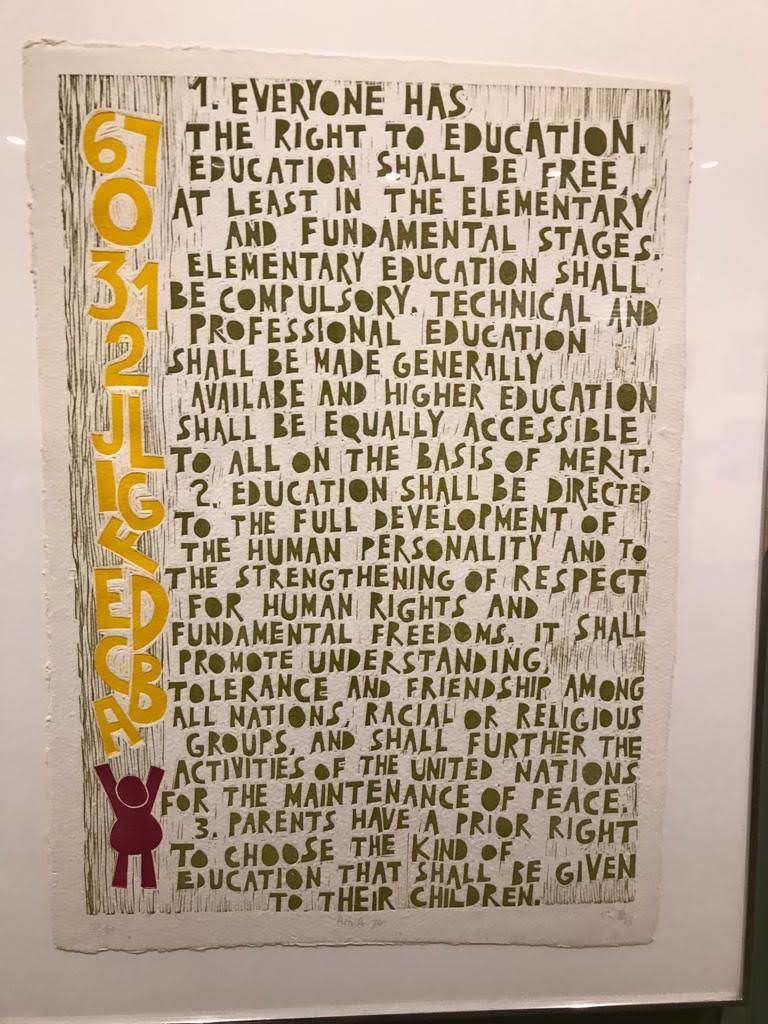 67
0
31
2
JL
IG
F
ED
CB
A
1. EVERYONE HAS
THE RIGHT TO EDUCATION.
EDUCATION SHALL BE FREE,
AT LEAST IN THE ELEMENTARY
AND FUNDAMENTAL STAGES.
ELEMENTARY EDUCATION SHALL
BE COMPULSORY. TECHNICAL AND
PROFESSIONAL EDUCATION
SHALL BE MADE GENERALLY
AVAILABE AND HIGHER EDUCATION
SHALL BE EQUALLY ACCESSIBLE
TO ALL ON THE BASIS OF MERIT.
2. EDUCATION SHALL BE DIRECTED
TO THE FULL DEVELOPMENT OF
THE HUMAN PERSONALITY AND TO
THE STRENGTHENING OF RESPECT
FOR HUMAN RIGHTS AND
FUNDAMENTAL FREEDOMS. IT SHALL
PROMOTE UNDERSTANDING,
TOLERANCE AND FRIENDSHIP AMONG
ALL NATIONS, RACIAL OR RELIGIOUS
GROUPS, AND SHALL FURTHER THE
ACTIVITIES OF THE UNITED NATIONS
FOR THE MAINTENANCE OF PEACE.
3. PARENTS HAVE A PRIOR RIGHT
TO CHOOSE THE KIND OF
EDUCATION THAT SHALL BE GIVEN
TO THEIR CHILDREN.